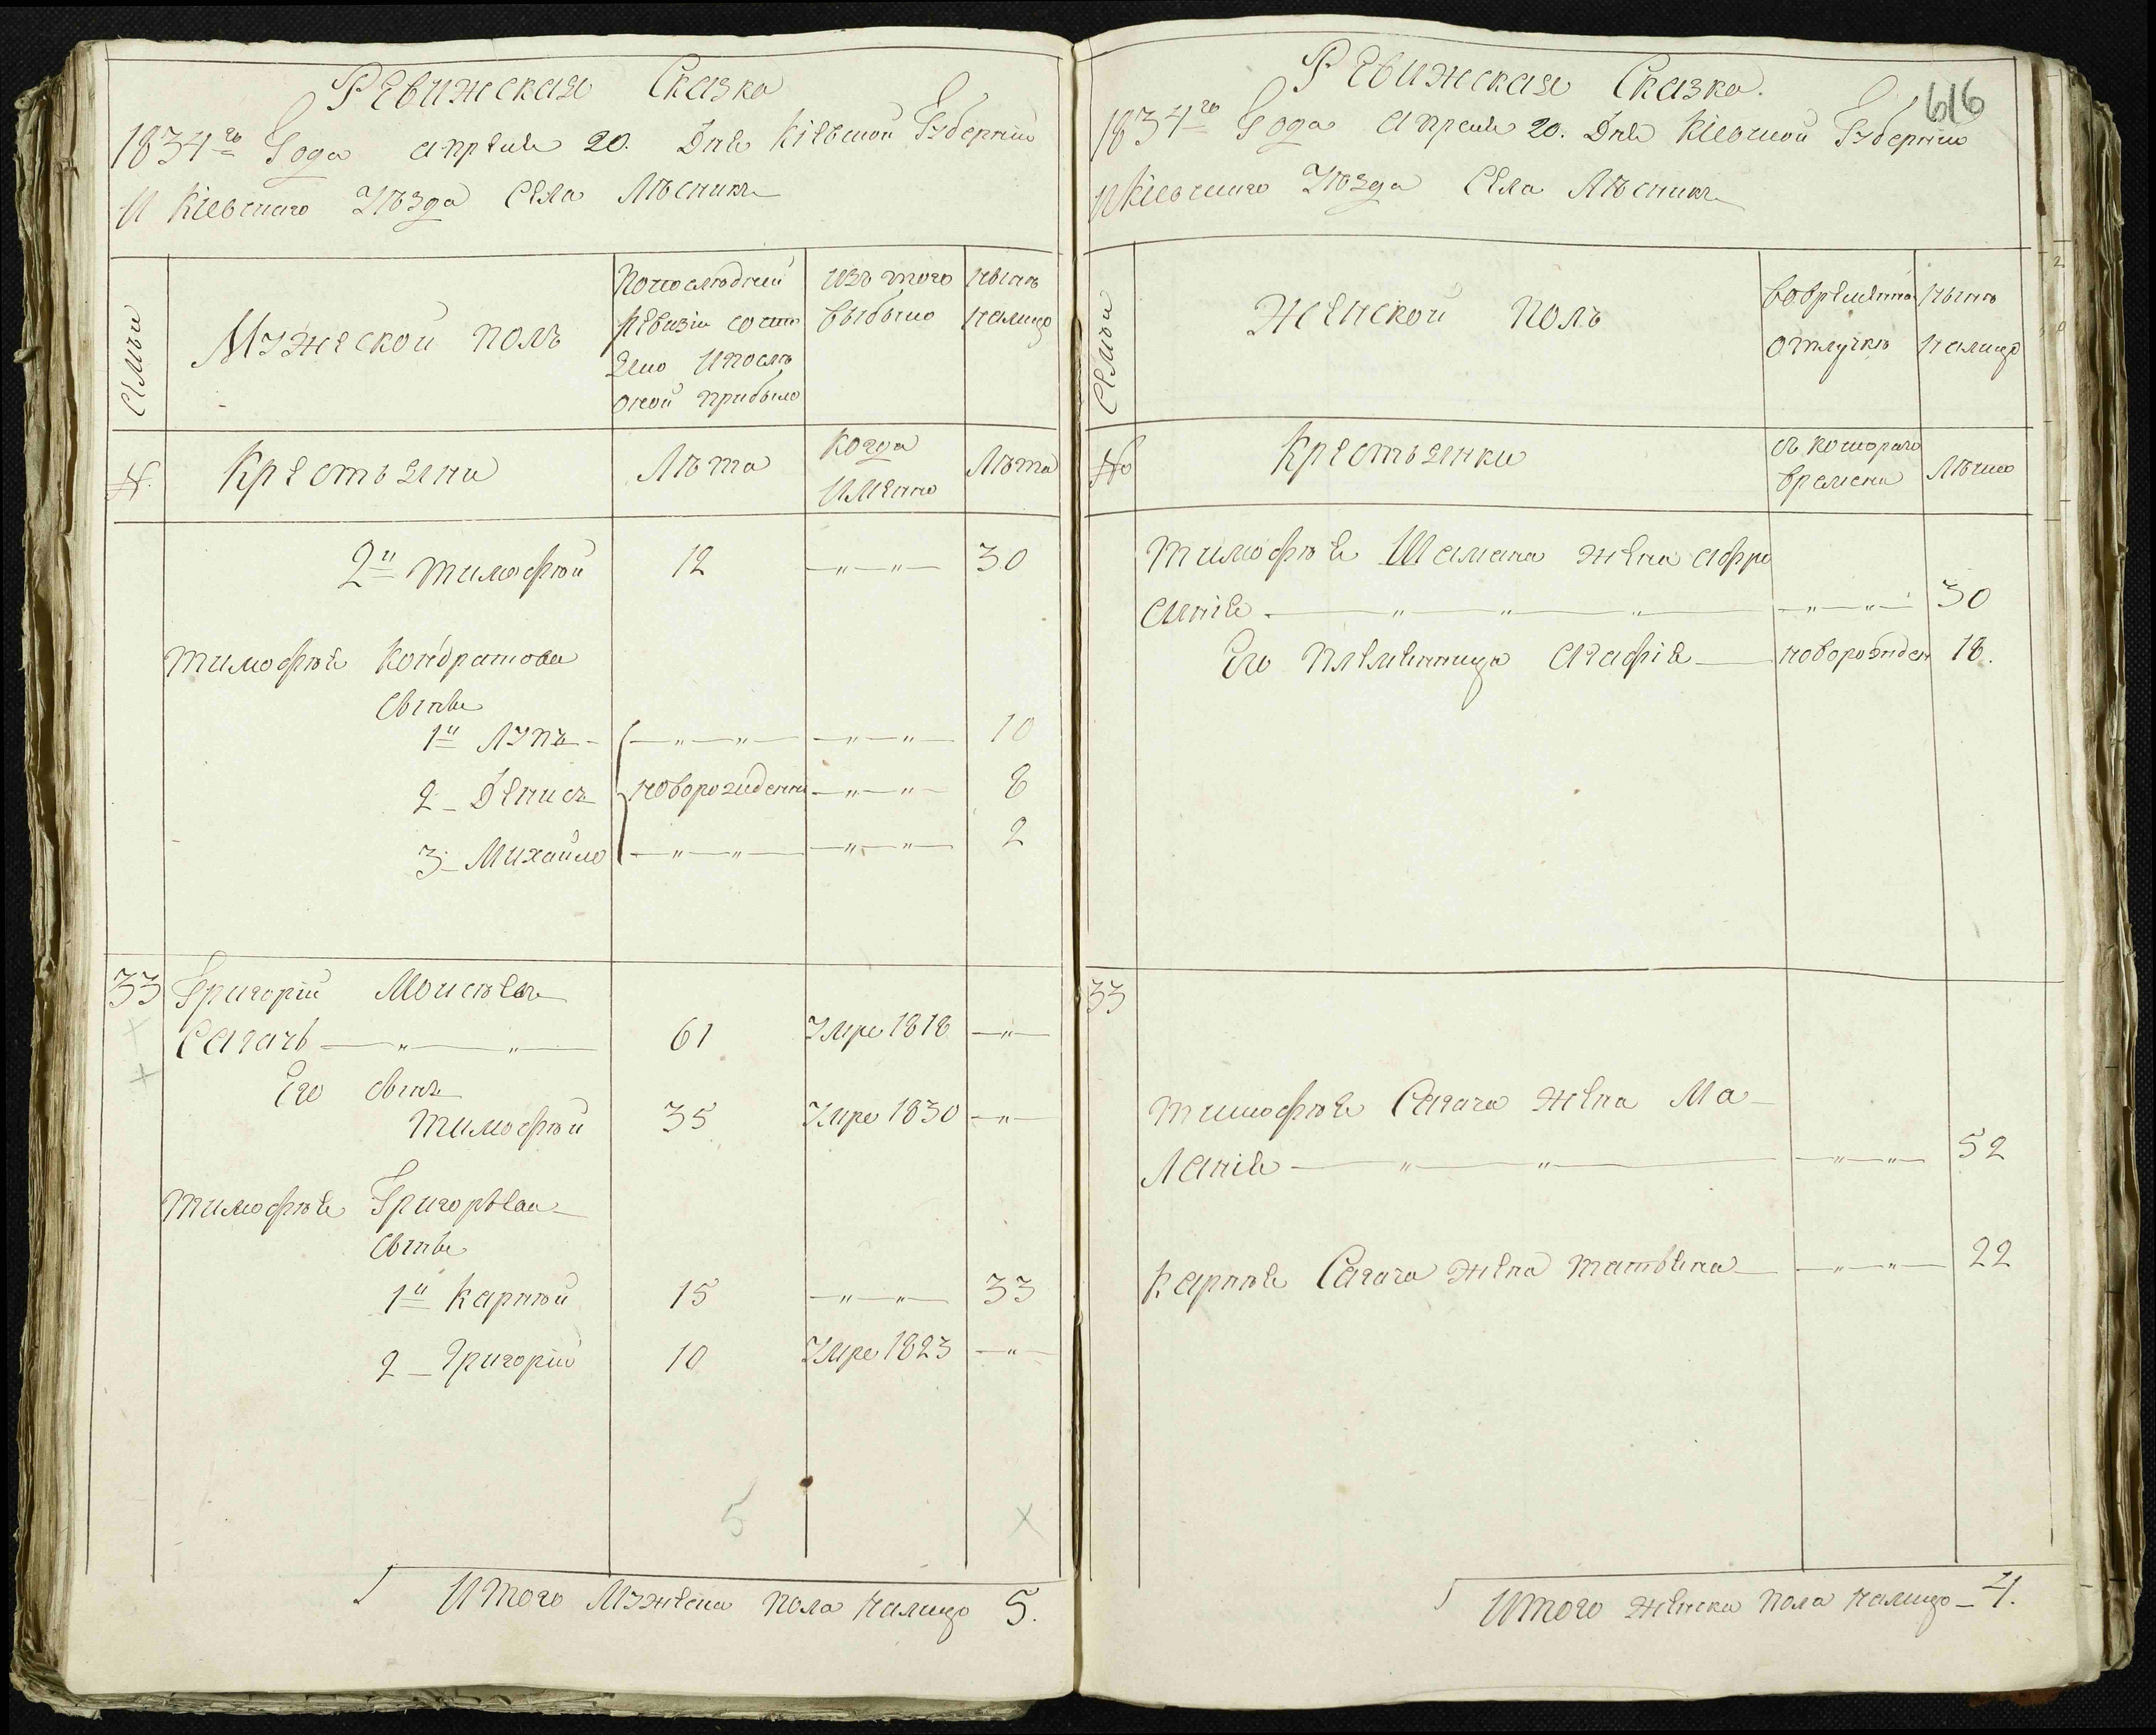 Ревижская Сказка
1834го Года апреля 20. Дня Кіевской Губерніи
И Кіевскаго Уѣзда Села Лѣсникъ
Семьи
Мужеской полъ
По последней
ревизіи состо
яло и послѣ
оной прибыло
Изъ того
выбыло
Нынѣ
налицо
№.
Крестьяни
Лѣта
Когда
имянно
Лѣта
2й Тимофѣй 12 —"—"— 30
Тимофѣя Кондратова
сынья
1й Лупъ —"—"— —"—"— 10
2 Денисъ новорожденни —"—"— 8
3 Михайло —"—"— —"—"— 2
33 Григорій Моисѣевъ
Сагачь —"—"— 61 Умре 1818 —"—
Его сынъ
Тимофѣй 35 Умре 1830 —"—
Тимофѣя Григорьева
сынья
1й Карпѣй 15 —"—"— 33
2 Григорій 10 Умре 1823 —"—
5 х
Итого Мужеска пола налицо 5.
616
Ревижская Сказка.
1834го Года апреля 20. Дня Кіевской Губерніи
И Кіевскаго Уѣзда Села Лѣсникъ
Семьи
Женской полъ
Во временной
отлучкѣ
Нынѣ
налицо
№
Крестьянки
съ котораго
времени
Лѣта
Тимофѣя Шамана жена Афро
синія —"—"—"— —"—"— 30
Его племянница Агафія — новорожден 18.
33
Тимофѣя Сагача жена Ма-
ланія —"—"— —"—"— 52
Карпѣя Сагача жена Татьяна —"—"— 22
Итого женска пола налицо — 4.